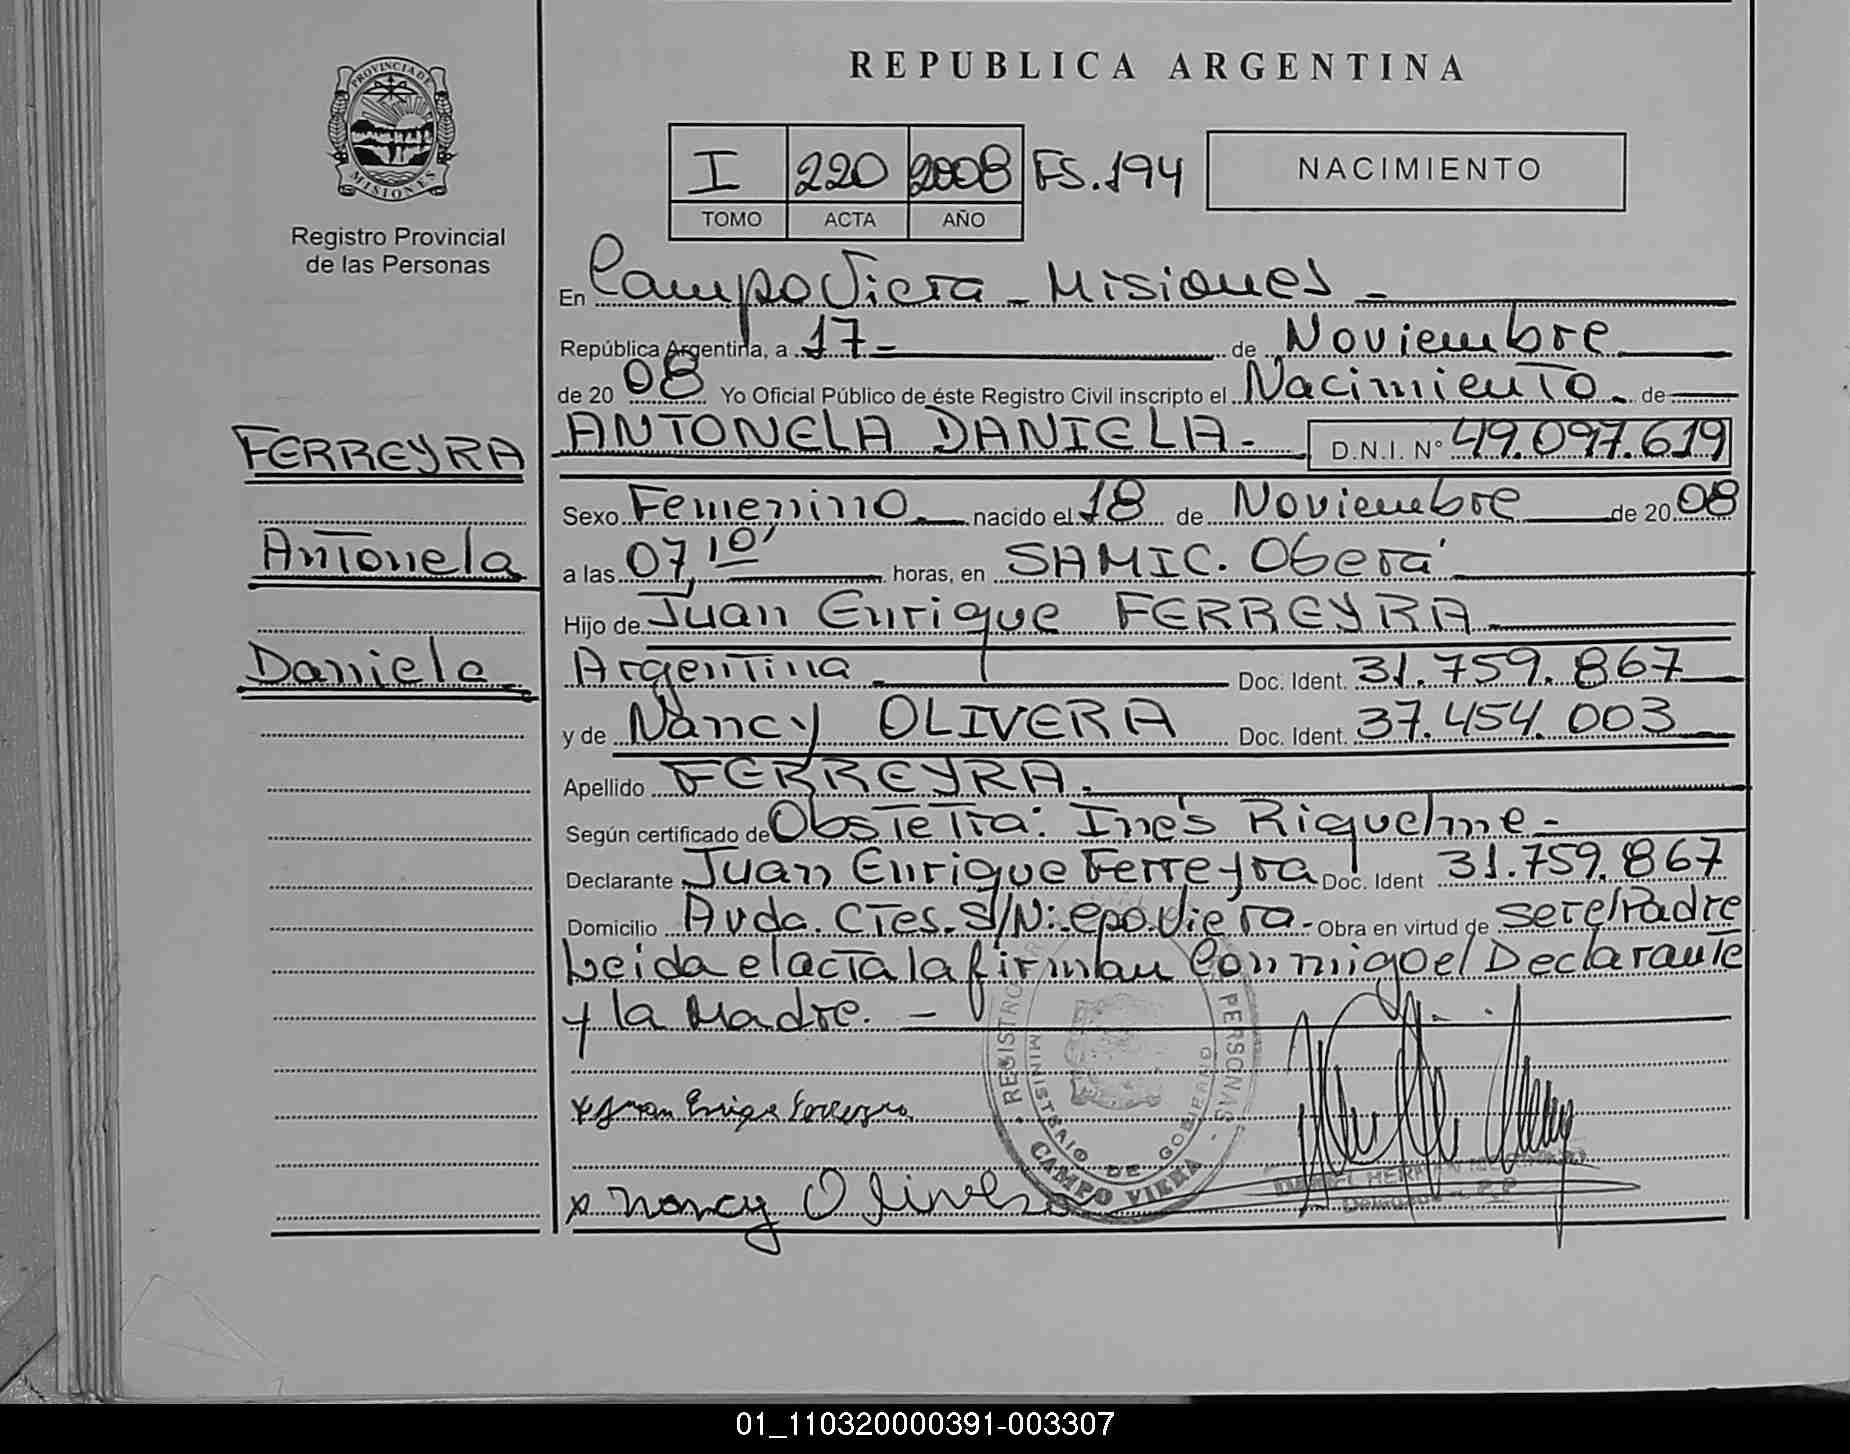 PROVINCIA DE
MISIONES
Registro Provincial
de las Personas
FERREYRA
Antonela
Daniela
REPUBLICA ARGENTINA
I 220 2008 FS.194
TOMO ACTA AÑO
NACIMIENTO
En Campo Viera - Misiones -
República Argentina, a 17 - de Noviembre
de 20 08 Yo Oficial Público de éste Registro Civil inscripto el Nacimiento. de
ANTONELA DANIELA - D.N.I. N° 49.097.619
Sexo Femenino nacido el 18 de Noviembre de 20 08
a las 07,10' horas, en SAMIC. Oberá
Hijo de Juan Enrique FERREYRA
Argentina Doc. Ident. 31.759.867
y de Nancy OLIVERA Doc. Ident. 37.454.003
Apellido FERREYRA.
Según certificado de Obstetra: Inés Riquelme -
Declarante Juan Enrique Ferreyra Doc. Ident 31.759.867
Domicilio Avda. Ctes. S/N: cpo. Viera - Obra en virtud de ser el Padre
Leida el acta la firman Conmigo el Declarante
y la Madre. -
x Juan Enriqe Ferreyra
x nancy Olivera
REGISTRO PERSONAS
MINISTERIO DE GOBIERNO
CAMPO VIERA
01_110320000391-003307